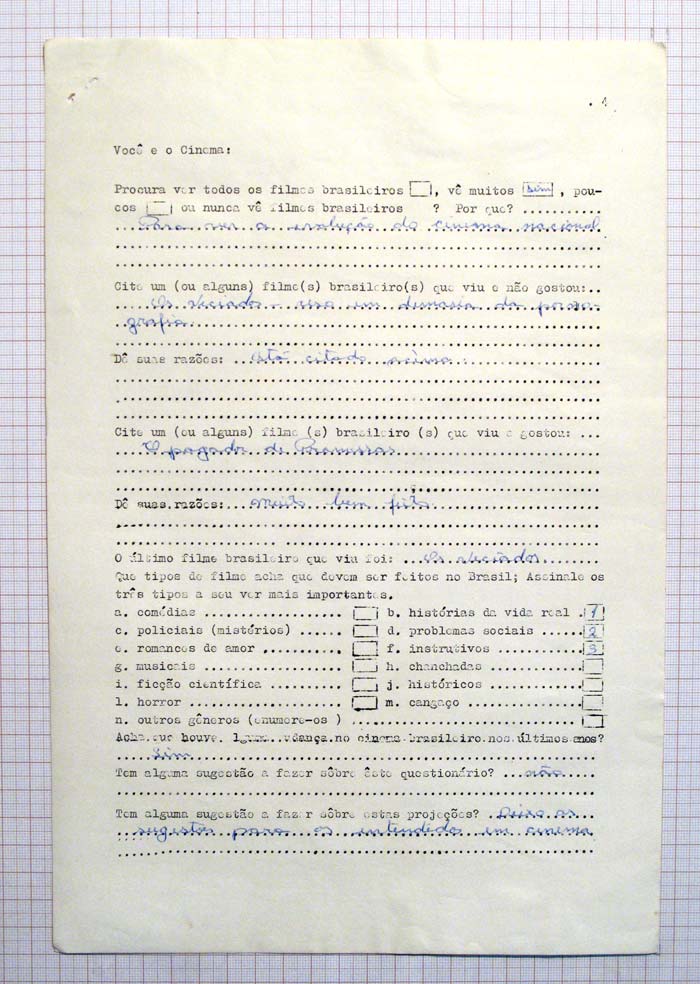 . 4
Você e o Cinema:
Procura ver todos os filmes brasileiros , vê muitos sim , pou-
cos ou nunca vê filmes brasileiros ? Por que? ...........
Para ver a evolução do cinema nacional
Cite um (ou alguns) filme(s) brasileiro(s) que viu e não gostou:..
Os viciados - em demasia da porno-
grafia
Dê suas razões: .. está citado acima.
Cite um (ou alguns) filme (s) brasileiro (s) que viu e gostou: ...
O pagador de Promessas
Dê suas razões:... muito bem feito
O último filme brasileiro que viu foi: ... Os viciados
Que tipos de filme acha que devem ser feitos no Brasil; Assinale os
três tipos a seu ver mais importantes.
a. comédias .................... b. histórias da vida real . 1
c. policiais (mistérios) ...... d. problemas sociais ...... 2
e. romances de amor ........... f. instrutivos ............ 3
g. musicais ................... h. chanchadas .............
i. ficção científica .......... j. históricos .............
l. horror ..................... m. cangaço ................
n. outros gêneros (enumere-os ) ..............................
Acha que houve lguma udança no cinema brasileiro nos últimos anos?
Sim
Tem alguma sugestão a fazer sôbre êste questionário? ... não
Tem alguma sugestão a fazer sôbre estas projeções? . Deixo as
sugestões para os entendidos em cinema